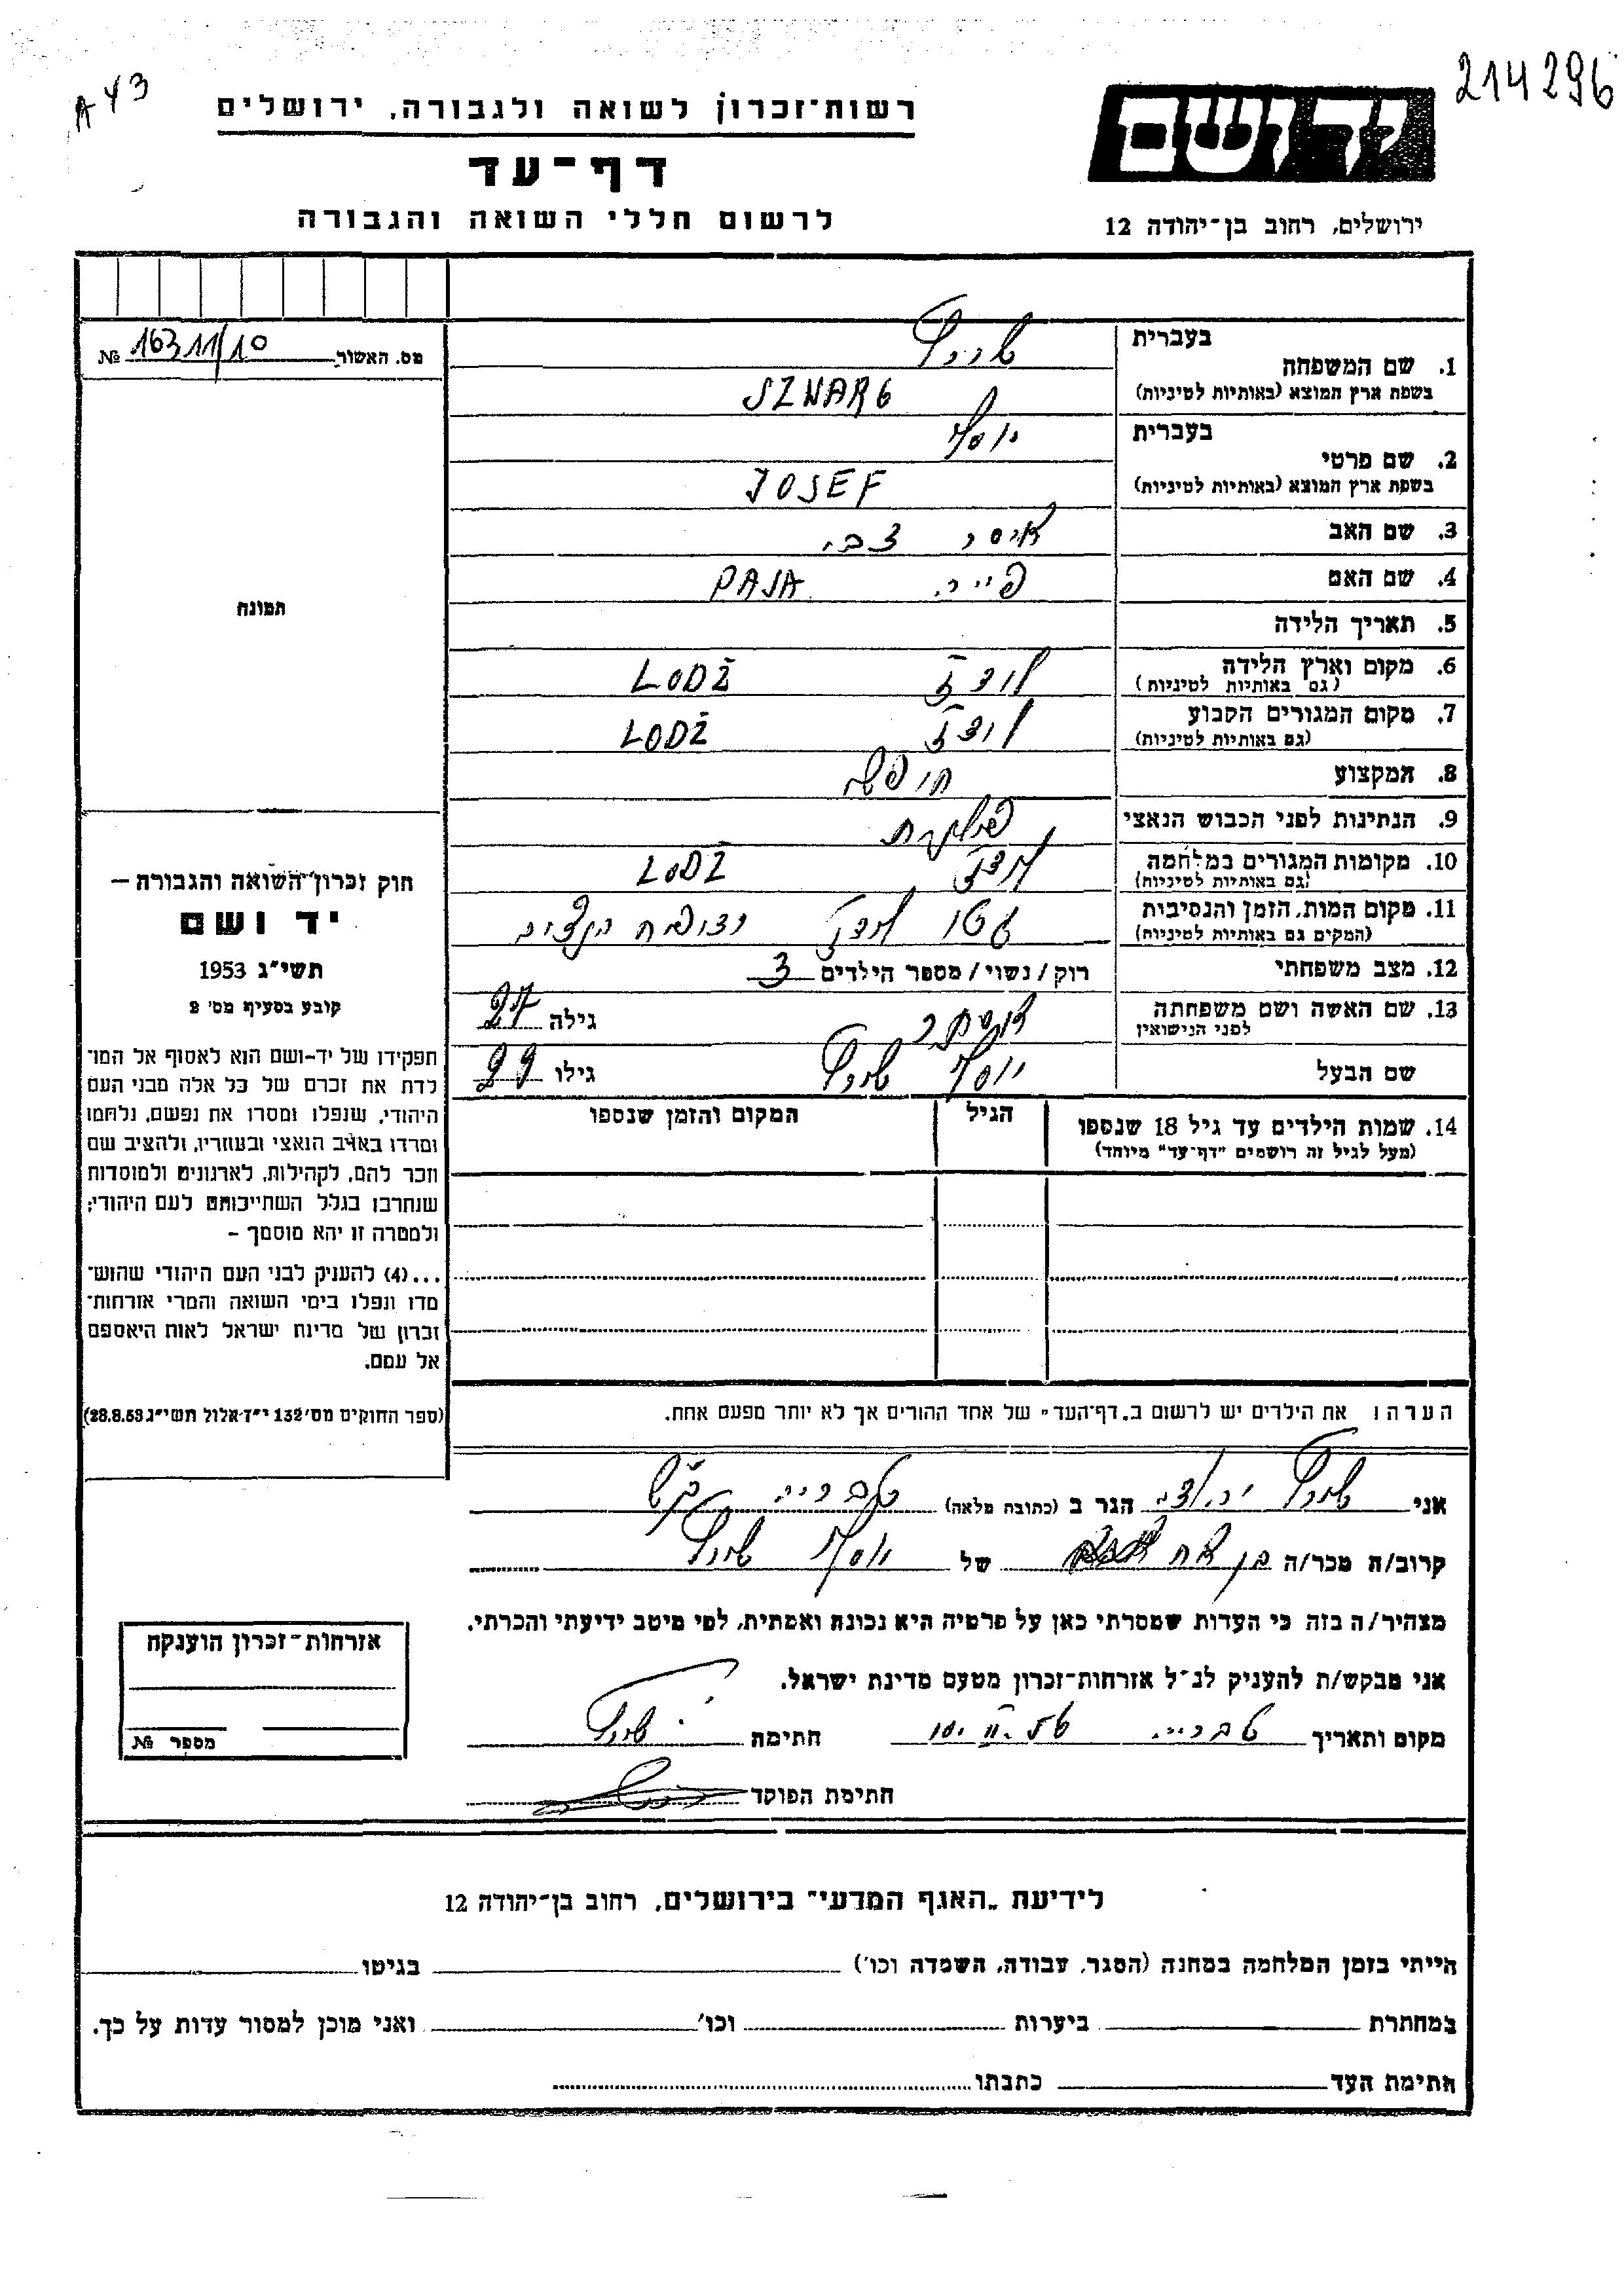 214296
A 43
רשות־זכרון לשואה ולגבורה, ירושלים
יד ושם
דף־עד
לרשום חללי השואה והגבורה
ירושלים, רחוב בן־יהודה 12
מס. האשור 16311/10 №
בעברית
1. שם המשפחה
בשפת ארץ המוצא (באותיות לטיניות) SZWARG
בעברית יוסף
2. שם פרטי
בשפת ארץ המוצא (באותיות לטיניות) JOSEF
3. שם האב צבי
4. שם האם PAJA
5. תאריך הלידה
6. מקום וארץ הלידה לודז LODŻ
(גם באותיות לטיניות)
7. מקום המגורים הקבוע לודז LODŻ
(גם באותיות לטיניות)
8. המקצוע
9. הנתינות לפני הכבוש הנאצי
10. מקומות המגורים במלחמה לודז LODŻ
(גם באותיות לטיניות)
11. מקום המות, הזמן והנסיבות גטו לודז
(המקום גם באותיות לטיניות)
12. מצב משפחתי רוק / נשוי / מספר הילדים 3
13. שם האשה ושם משפחתה אסתר גילה 27
לפני הנישואין
שם הבעל יוסף גילו 29
14. שמות הילדים עד גיל 18 שנספו הגיל המקום והזמן שנספו
(מעל לגיל זה רושמים "דף־עד" מיוחד)
תמונה
חוק זכרון השואה והגבורה –
יד ושם
תשי"ג 1953
קובע בסעיף מס' 2
תפקידו של יד-ושם הוא לאסוף אל המו־
לדת את זכרם של כל אלה מבני העם
היהודי, שנפלו ומסרו את נפשם, נלחמו
ומרדו באויב הנאצי ובעוזריו, ולהציב שם
וזכר להם, לקהילות, לארגונים ולמוסדות
שנחרבו בגלל השתייכותם לעם היהודי;
ולמטרה זו יהא מוסמך –
...(4) להעניק לבני העם היהודי שהוש־
מדו ונפלו בימי השואה והמרי אזרחות־
זכרון של מדינת ישראל לאות היאספם
אל עמם.
(ספר החוקים מס' 132 י"ז אלול תשי"ג 28.8.53)
הערה: את הילדים יש לרשום ב„דף־העד" של אחד ההורים אך לא יותר מפעם אחת.
אני הגר ב (כתובת מלאה) טבריה
קרוב/ה מכר/ה בן אח של יוסף
מצהיר/ה בזה כי העדות שמסרתי כאן על פרטיה היא נכונה ואמתית, לפי מיטב ידיעתי והכרתי.
אני מבקש/ת להעניק לנ"ל אזרחות־זכרון מטעם מדינת ישראל.
מקום ותאריך טבריה 10.II.56 חתימה
חתימת הפוקד
אזרחות־זכרון הוענקה
מספר №
לידיעת „האגף המדעי" בירושלים, רחוב בן־יהודה 12
הייתי בזמן המלחמה במחנה (הסגר, עבודה, השמדה וכו') בגיטו
במחתרת ביערות וכו' ואני מוכן למסור עדות על כך.
חתימת העד כתבתו